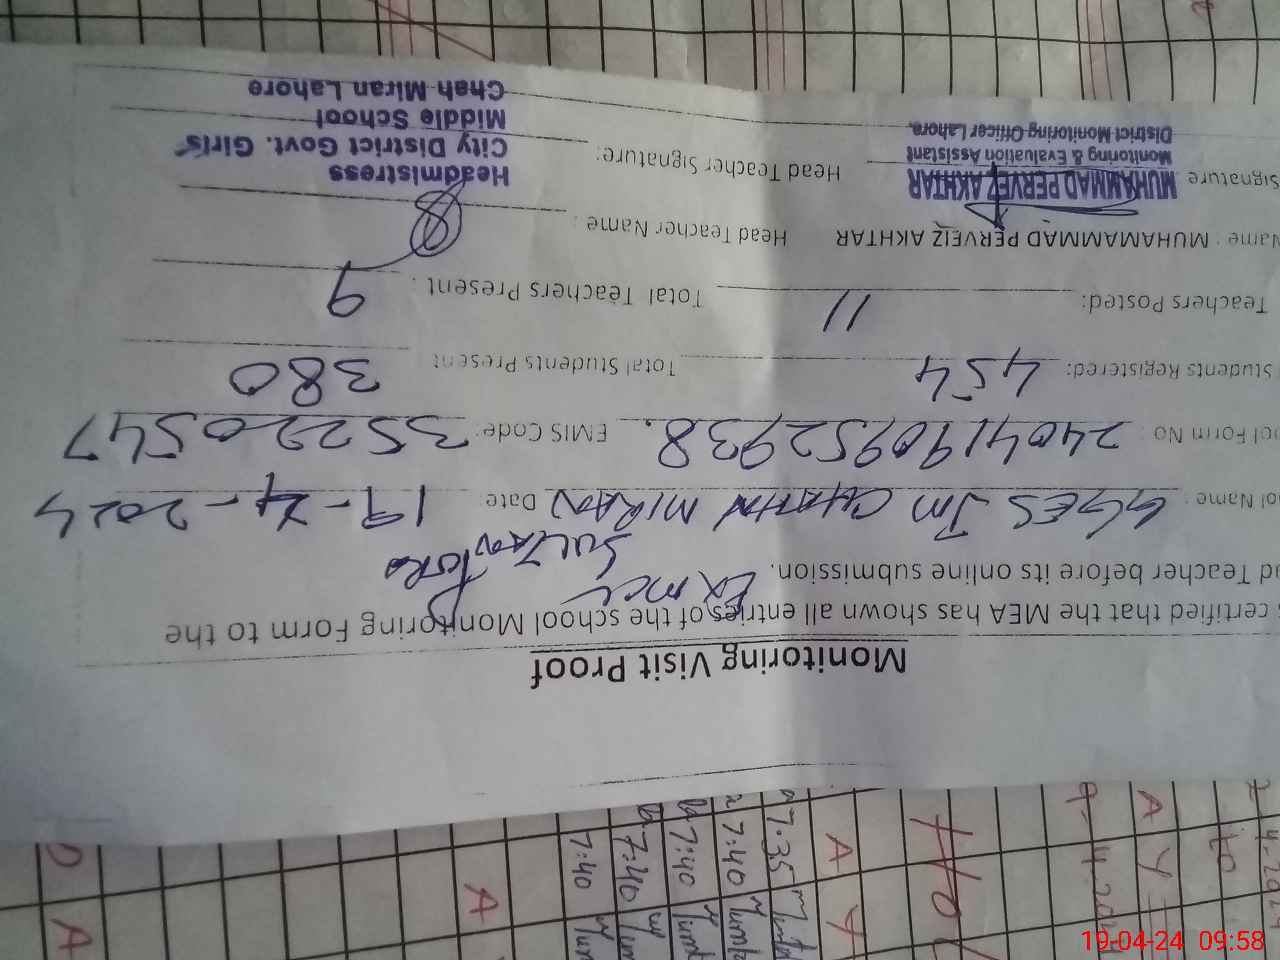 Monitoring Visit Proof
certified that the MEA has shown all entries of the school Monitoring Form to the
Teacher before its online submission. Ex mcl SULTAN PORA
Name: GGES Jm CHAHH MIRAN Date: 19-4-2024
Form No: 2404190952938. EMIS Code: 35220547
Students Registered: 454 Total Students Present 380
Teachers Posted: 11 Total Teachers Present: 9
Name: MUHAMMAD PERVEIZ AKHTAR Head Teacher Name:
Signature MUHAMMAD PERVEZ AKHTAR Head Teacher Signature:
Monitoring & Evaluation Assistant
District Monitoring Officer Lahore.
Headmistress
City District Govt. Girls
Middle School
Chah Miran Lahore
A
A
A
A
A
Y
Y
7:35
7:40
7:40
7:40
7:40
19-04-24 09:58